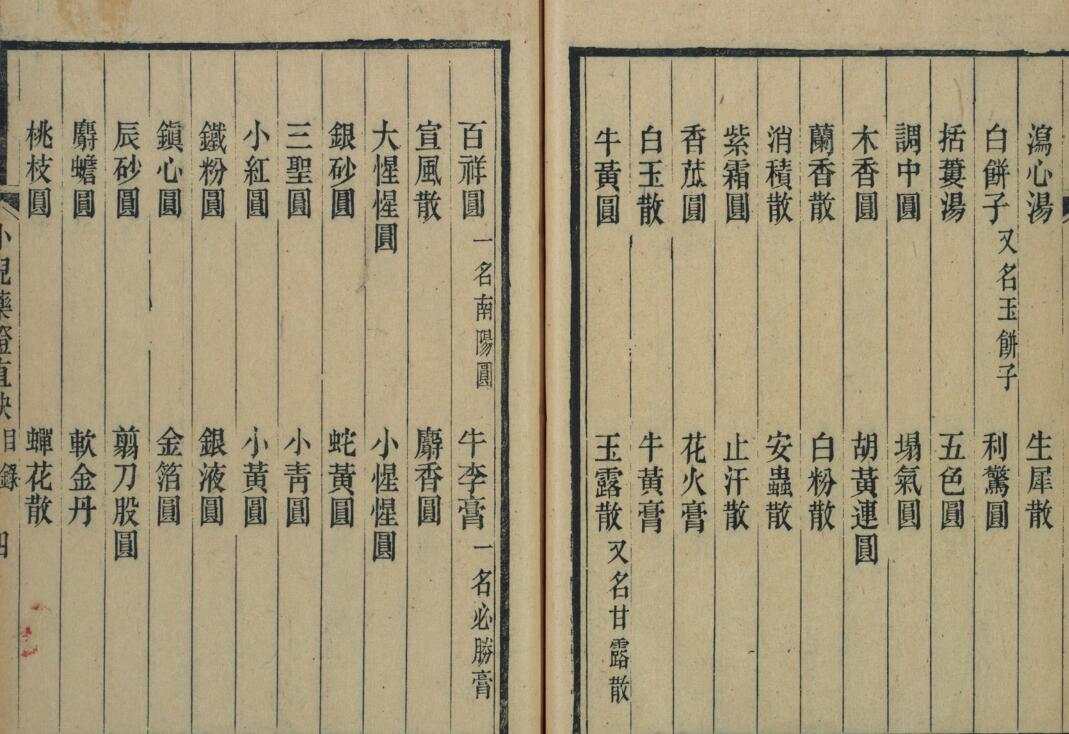 瀉心湯 生犀散
白餅子又名玉餅子 利驚圓
括蔞湯 五色圓
調中圓 塌氣圓
木香圓 胡黃連圓
蘭香散 白粉散
消積散 安蟲散
紫霜圓 止汗散
香苽圓 花火膏
白玉散 牛黃膏
牛黃圓 玉露散又名甘露散
百祥圓一名南陽圓 牛李膏一名必勝膏
宣風散 麝香圓
大惺惺圓 小惺惺圓
銀砂圓 蛇黃圓
三聖圓 小青圓
小紅圓 小黃圓
鐵粉圓 銀液圓
鎭心圓 金箔圓
辰砂圓 翦刀股圓
麝蟾圓 軟金丹
桃枝圓 蟬花散
小兒藥證直訣 目錄 四